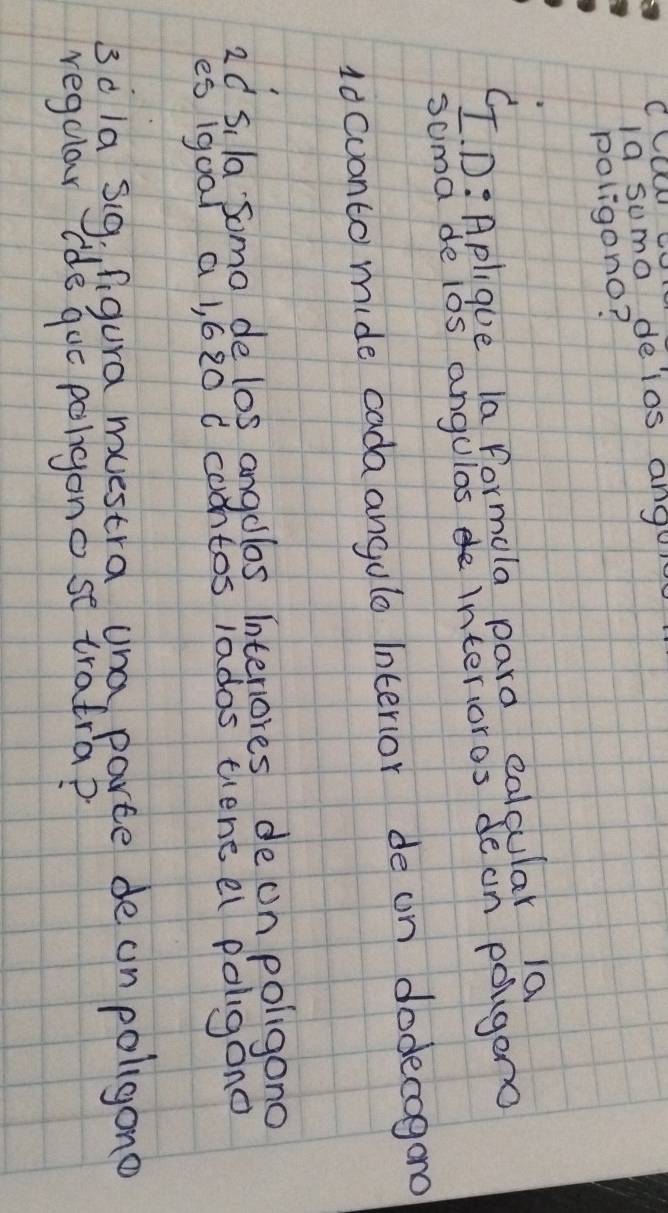 la suma de los
poligono?
G.I.D: Aplique la formula para calcular la
suma de los angulos de interioros de un poligono
1 ¿Cuanto mide cada angulo interior de un dodecagono
2 ¿ Si la suma de los angulos interiores de un poligono
es igual a 1,620 ¿ cuantos lados tiene el poligono
3 ¿ la sig. figura muestra una parte de un poligono
regular ¿de que poligono se tratra?